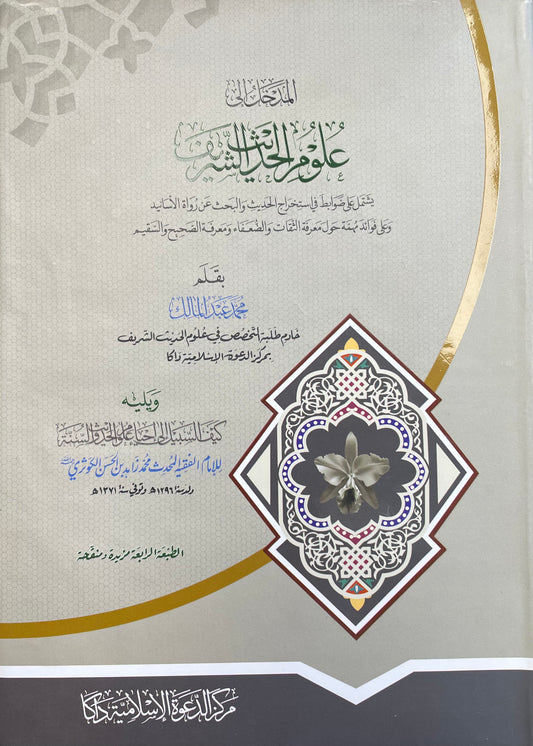 المدخل إلى
علوم الحديث الشريف
يشتمل على ضوابط في استخراج الحديث والبحث عن رواة الأسانيد
وعلى فوائد مهمة حول معرفة الثقات والضعفاء ومعرفة الصحيح والسقيم
بقلم
محمد عبد المالك
خادم طلبة التخصص في علوم الحديث الشريف
بمركز الدعوة الإسلامية داكا
ويليه
كيف السبيل إلى إحياء علوم الحديث والسنة
للإمام الفقيه المحدث محمد زاهد بن الحسن الكوثري
ولد سنة ١٢٩٦ه‍ وتوفي سنة ١٣٧١ه‍
الطبعة الرابعة مزيدة ومنقحة
مركز الدعوة الإسلامية داكا